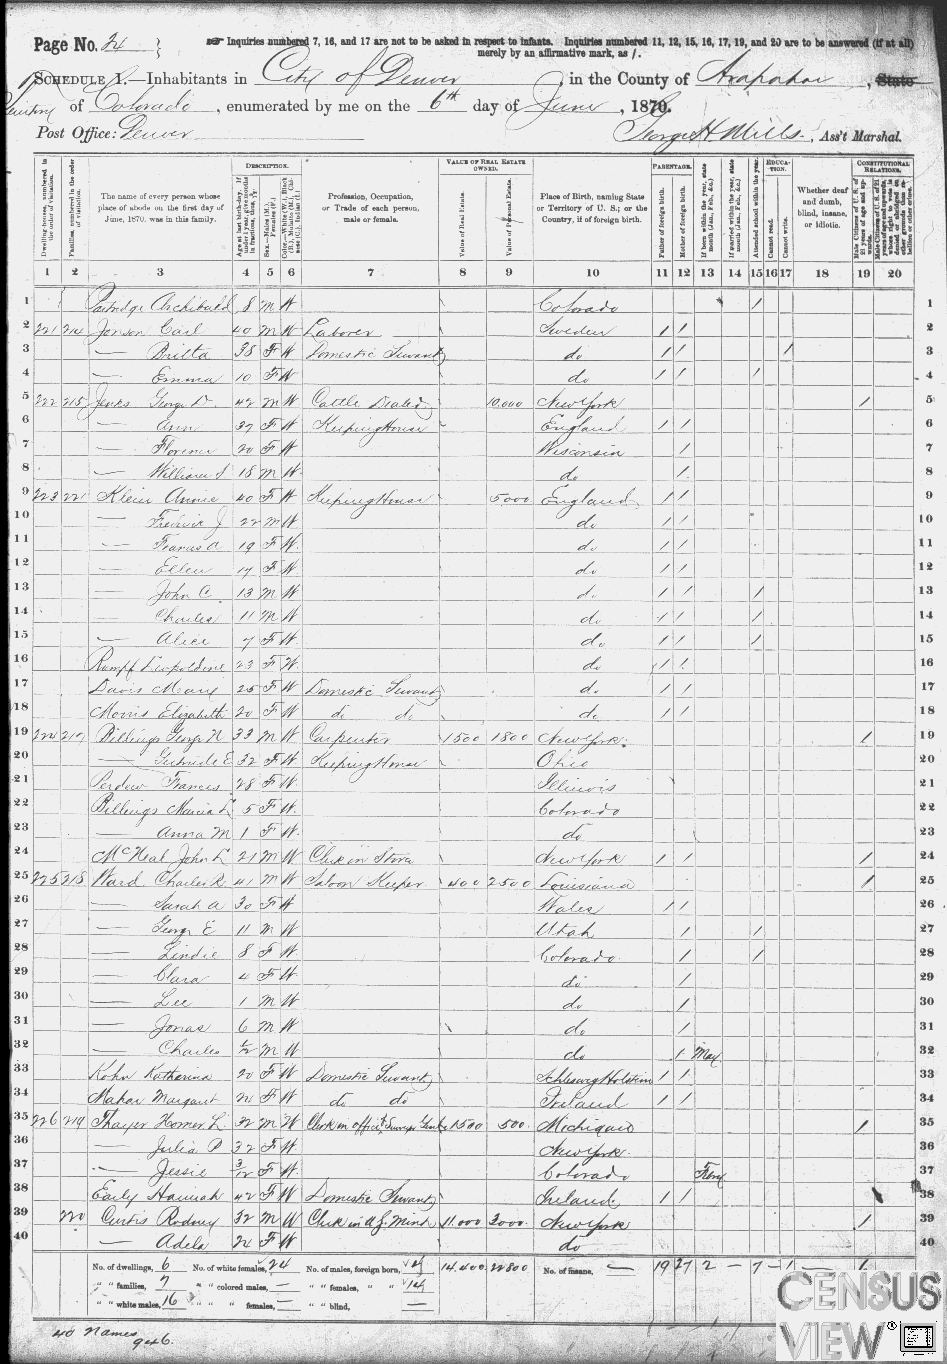 Page No. 24
☞ Inquiries numbered 7, 16, and 17 are not to be asked in respect to infants. Inquiries numbered 11, 12, 15, 16, 17, 19, and 20 are to be answered (if at all)
merely by an affirmative mark, as /.
SCHEDULE 1.—Inhabitants in City of Denver, in the County of Arapahoe, State
of Colorado, enumerated by me on the 6th day of June, 1870.
Post Office: Denver George H. Mills, Ass't Marshal.
DESCRIPTION. VALUE OF REAL ESTATE OWNED. PARENTAGE. EDUCATION. CONSTITUTIONAL RELATIONS.
Dwelling-houses, numbered in the order of visitation.
Families, numbered in the order of visitation.
The name of every person whose place of abode on the first day of June, 1870, was in this family.
Age at last birth-day. If under 1 year, give months in fractions, thus, 3/12
Sex.—Males (M.), Females (F.)
Color.—White (W.), Black (B.), Mulatto (M.), Chinese (C.), Indian (I.)
Profession, Occupation, or Trade of each person, male or female.
Value of Real Estate.
Value of Personal Estate.
Place of Birth, naming State or Territory of U. S.; or the Country, if of foreign birth.
Father of foreign birth.
Mother of foreign birth.
If born within the year, state month (Jan., Feb., &c.)
If married within the year, state month (Jan., Feb., &c.)
Attended school within the year.
Cannot read.
Cannot write.
Whether deaf and dumb, blind, insane, or idiotic.
Male Citizens of U. S. of 21 years of age and upwards.
1 2 3 4 5 6 7 8 9 10 11 12 13 14 15 16 17 18 19 20
1 Partridge Archibald 8 M W Colorado / 1
2 221 214 Jonson Carl 40 M W Laborer Sweden / / 2
3 — Britta 38 F W Domestic Servant do / / / 3
4 — Emma 10 F W do / / / 4
5 222 215 Jenks George 42 M W Cattle Dealer 10,000 New York / 5
6 — Ann 37 F W Keeping House England / / 6
7 — Florence 20 F W Wisconsin / 7
8 — William 18 M W do / 8
9 223 Klein Annie 40 F W Keeping House 5000 England / / 9
10 — J 22 M W do / / 10
11 — Francis A 19 F W do / / 11
12 — Ellen 17 F W do / / 12
13 — John C 13 M W do / / / 13
14 — Charles 11 M W do / / / 14
15 — Alice 7 F W do / / / 15
16 Rumpf Leopoldine 23 F W do / / 16
17 Davis Mary 25 F W Domestic Servant do / / 17
18 Morris Elizabeth 20 F W do do do / / 18
19 224 217 Billings George N 33 M W Carpenter 1500 1800 New York / 19
20 — Gertrude E 32 F W Keeping House Ohio 20
21 Perdew Frances 28 F W Illinois 21
22 Billings Marcia L 5 F W Colorado 22
23 — Anna M 1 F W do 23
24 McNeal John L 21 M W Clerk in Store New York / / / 24
25 225 218 Ward Charles R 41 M W Saloon Keeper 400 2500 Louisiana / 25
26 — Sarah A 30 F W Wales / / 26
27 — George E 11 M W Utah / / 27
28 — Lindie 8 F W Colorado / / 28
29 — Clara 4 F W do / 29
30 — Lee 1 M W do / 30
31 — Jonas 6 M W do / 31
32 — Charles 1/12 M W do / May 32
33 Kohn Katharina 20 F W Domestic Servant Schleswig Holstein / / 33
34 Mahar Margaret 22 F W do do Ireland / / 34
35 226 219 Thayer Homer L. 32 M W Clerk in office 1500 500 Michigan / 35
36 — Julia P 32 F W New York 36
37 — Jessie 3/12 F W Colorado 37
38 Early Hannah 42 F W Domestic Servant Ireland / / 38
39 220 Curtis Rodney 32 M W Clerk in U.S. Mint 11.000 3000 New York / 39
40 — Adela 24 F W do 40
No. of dwellings, 6 No. of white females, 24 No. of males, foreign born, 14.400 22800 No. of insane, — 19 27 2 — 7 — 1 —
" " families, 7 " " colored males, — " " females, " "
" " white males, 16 " " " females, — " " blind, —
40 Names
946.
CENSUS
VIEW